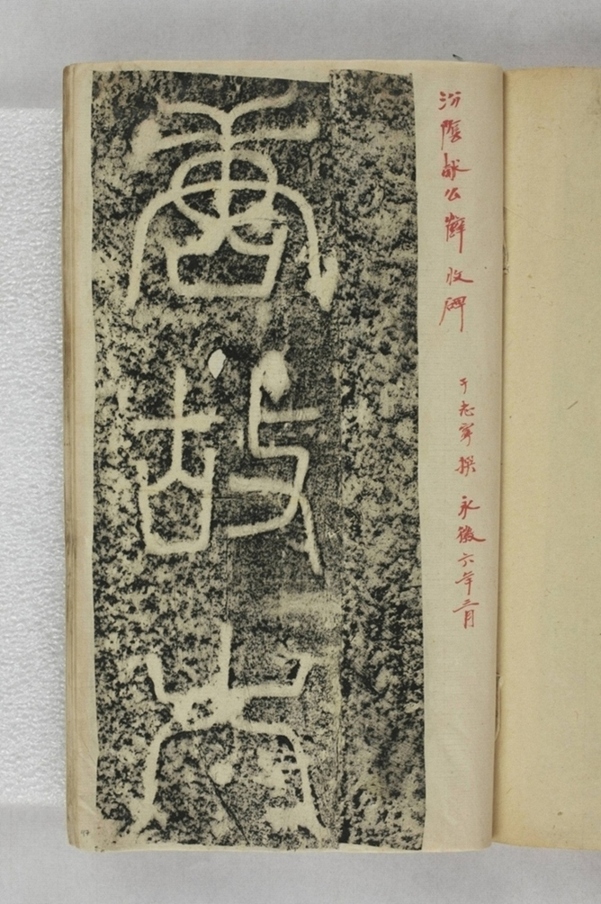 汾陰献公薛收碑
于志寧撰 永徽六年三月
唐故太